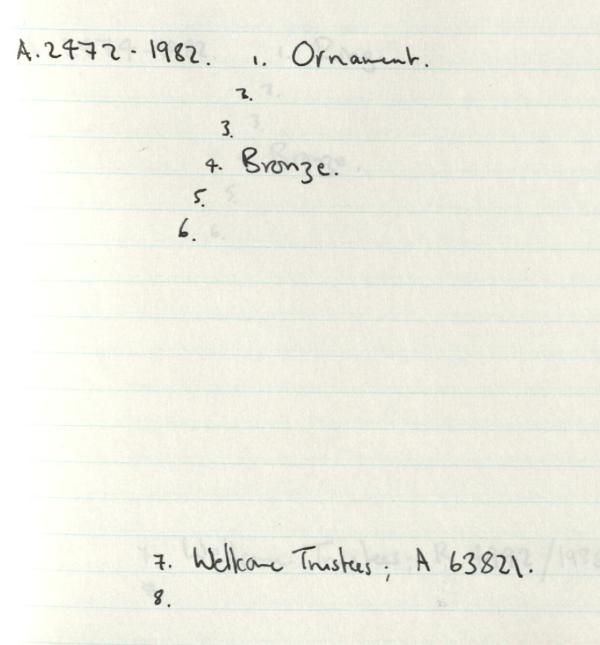 A.2472-1982. 1. Ornament.
2.
3.
4. Bronze.
5.
6.
7. Wellcome Trustees; A 63821.
8.